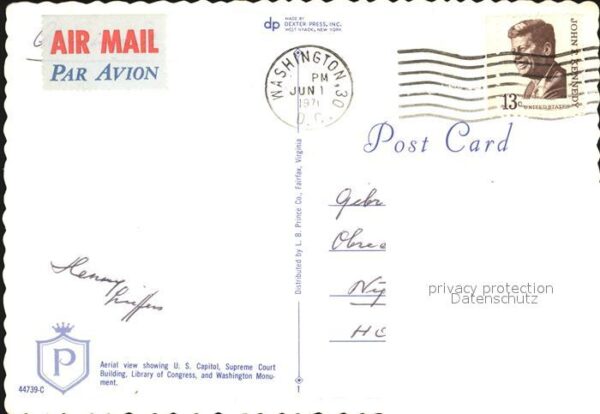 AIR MAIL
PAR AVION
dp
MADE BY
DEXTER PRESS, INC.
WEST NYACK, NEW YORK
WASHINGTON, D.C. 30
PM
JUN 1
1971
JOHN F. KENNEDY
13c UNITED STATES
Post Card
Distributed by L. B. Prince Co., Fairfax, Virginia
Obre
privacy protection
Datenschutz
Henry
P
Aerial view showing U. S. Capitol, Supreme Court
Building, Library of Congress, and Washington Monu-
ment.
44739-C
1